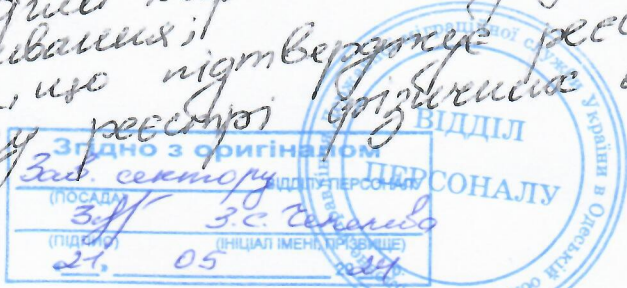 вання;
, що підтверджує реєс
у реєстрі фізичних
Згідно з оригіналом
Зав. сектору ВІДДІЛУ ПЕРСОНАЛУ
(ПОСАДА)
З.С.
(ПІДПИС) (ІНІЦІАЛ ІМЕНІ, ПРІЗВИЩЕ)
21, 05 2024 р.
міграційної служби України в Одеській об
ВІДДІЛ
ПЕРСОНАЛУ